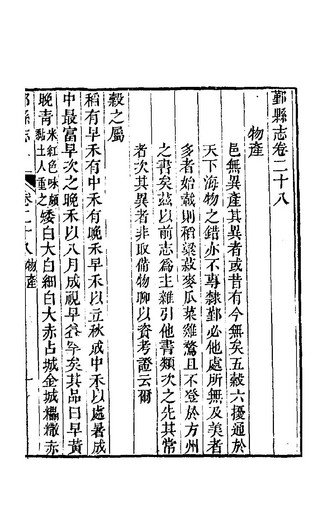 鄞縣志卷二十八
物產
邑無異產其異者或昔有今無矣五穀六擾通於
天下海物之錯亦不專隸鄞必他處所無及美者
多者始載則稻粱菽麥瓜菜雞鶩且不登於方州
之書矣茲以前志為主雜引他書類次之先其常
者次其異者非取備物聊以資考證云爾
穀之屬
稻有早禾有中禾有晚禾早禾以立秋成中禾以處暑成
中最富早次之晚禾以八月成視早益罕矣其品曰早黃
晚青米紅色味頗黏土人重之矮白大白細白大赤占城金城糯赤
鄞縣志 卷二十八物產 一